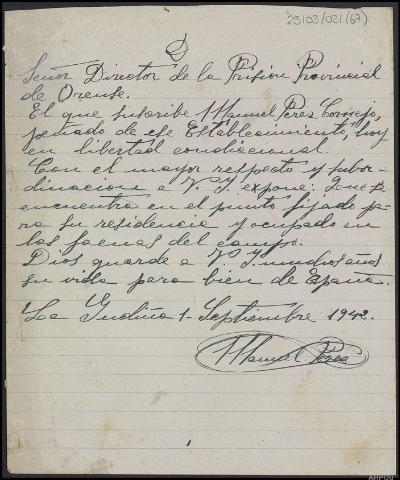 25/03/031(67)
Señor Director de la Prision Provincial
de Orense.
El que suscribe Manuel Peres Cornejo,
penado de ese Establecimiento, hoy
en libertad condiccional.
Con el mayor respecto y subor-
dinacion a V. I. expone: Que se
encuentra en el punto fijado pa-
ra su residencia y ocupado en
las faenas del campo.
Dios guarde a V. I. muchos años
su vida para bien de España.
La Gudiña 1- Septiembre 1942.
Manuel Peres
AHPOU